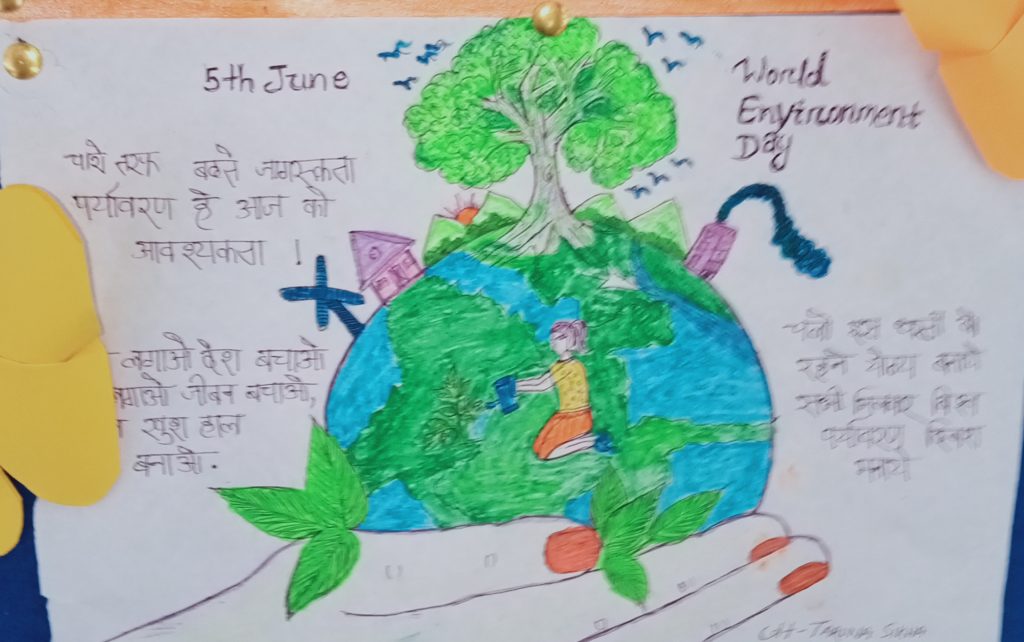 5th June
World
Environment
Day
चारो तरफ बढाते जागरूकता
पर्यावरण है आज की
आवश्यकता !
लगाओ देश बचाओ
जीवन बचाओ,
खुश हाल
बनाओ.
चलो इस धरती को
रहने योग्य बनाये
सभी मिलकर विश्व
पर्यावरण दिवस
मनाये